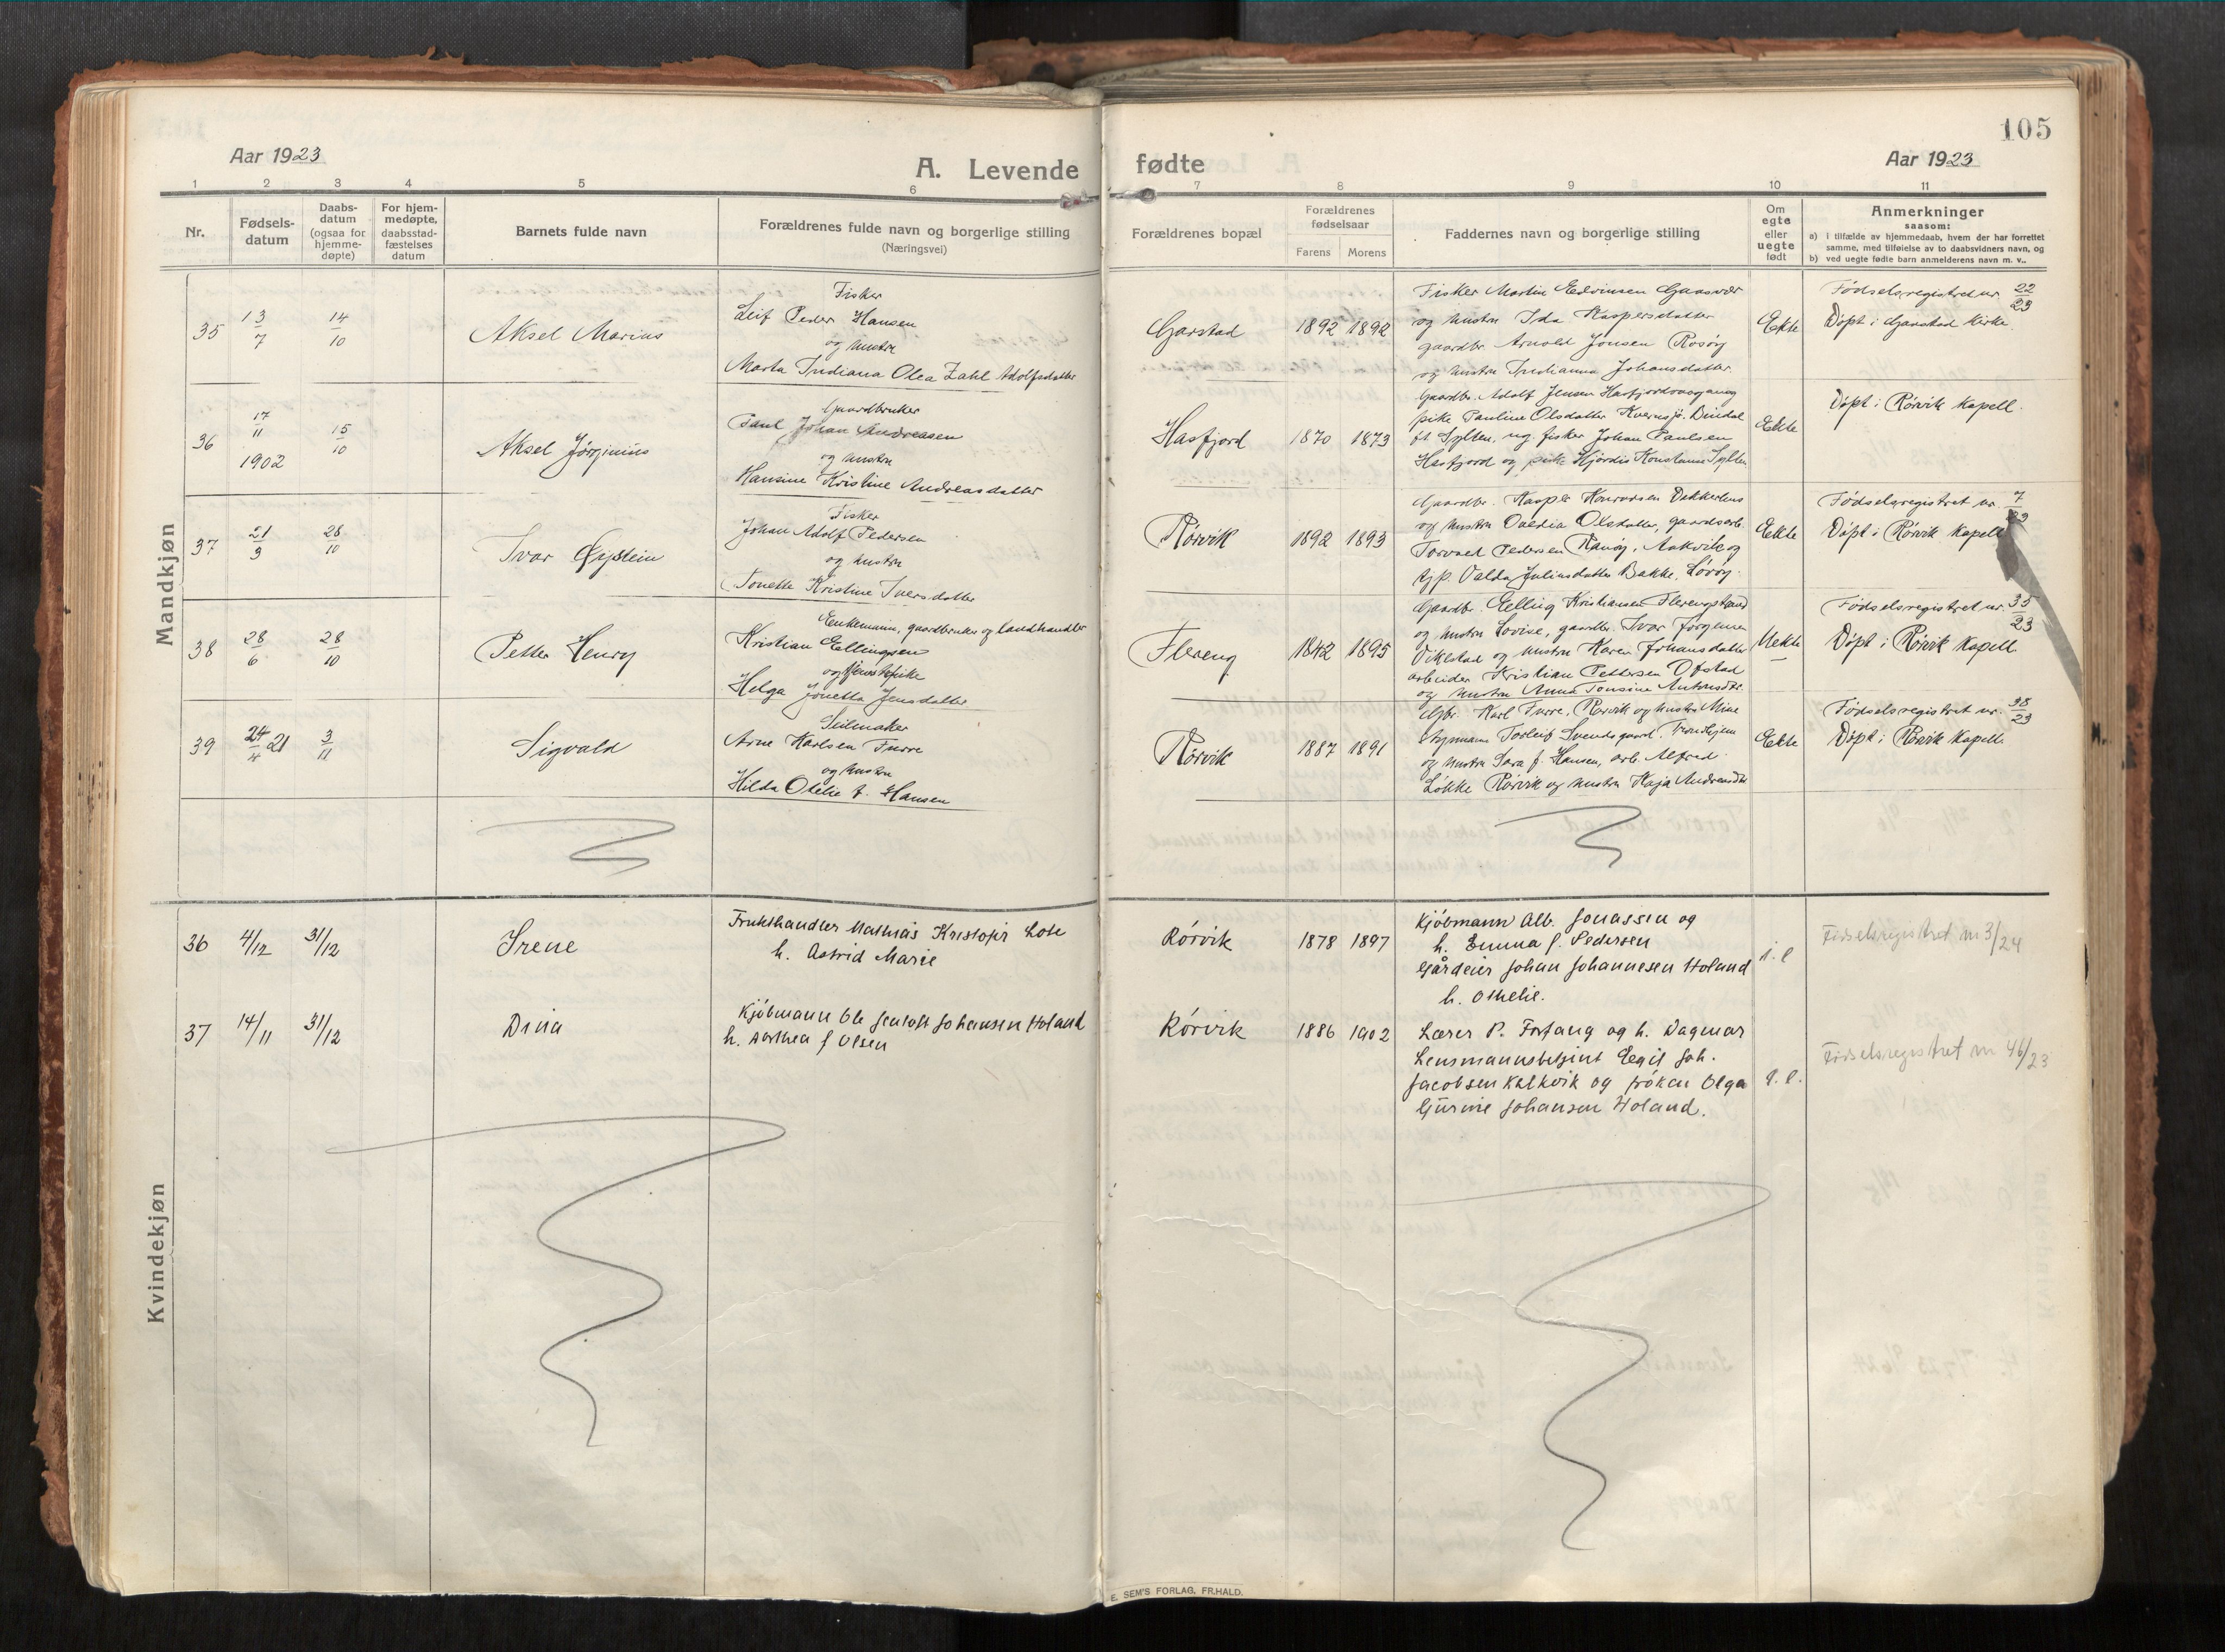 105
Aar 1923
A. Levende
fødte
Aar 1923
1 2 3 4 5 6 7 8 9 10 11
Nr.
Fødsels-
datum
Daabs-
datum
(ogsaa for
hjemme-
døpte)
For hjem-
medøpte,
daabsstad-
fæstelses
datum
Barnets fulde navn
Forældrenes fulde navn og borgerlige stilling
(Næringsvei)
Forældrenes bopæl
Forældrenes
fødselsaar
Farens Morens
Faddernes navn og borgerlige stilling
Om
egte
eller
uegte
født
Anmerkninger
saasom:
a) i tilfælde av hjemmedaab, hvem der har forrettet
samme, med tilføielse av to daabsvidners navn, og
b) ved uegte fødte barn anmelderens navn m. v..
Mandkjøn
35 13/7 14/10 Aksel Marius
Fisker
Leif Peder Hansen
og hustru
Marta Indiana Olea Zahl Adolfsdatter
Garstad 1892 1892
Fisker Martin Edvinsen Gaasvær
og hustru Ida Kaspersdatter
gaardbr. Arnold Jonsen Rosøy
og hustru Indianna Johansdatter
Ekte
Fødselsregistret nr. 22/23
Døpt i Garstad Kirke.
36 17/11 1902 15/10 Aksel Jørginius
Gaardbruker
Paul Johan Andreasen
og hustru
Hansine Kristine Andreasdatter
Hasfjord 1870 1873
Gaardbr. Adolf Jensen
pike Pauline Olsdatter Bindal
Sylten, ug. fisker Johan Paulsen
Hasfjord og pike Hjørdis Konstanse Sylten
Ekte
Døpt i Rørvik Kapell.
37 21/3 28/10 Ivar Øystein
Fisker
Johan Adolf Pedersen
og hustru
Tonette Kristine Iversdatter
Rørvik 1892 1893
Gaardbr. Kasper Konradsen
og hustru Ovedia Olsdatter, gaardsarb.
Torvald Pedersen Ramøy, Aakvik og
tjp. Valda Juliusdatter Bakke, Lørøy.
Ekte
Fødselsregistret nr. 7/23
Døpt i Rørvik Kapell
38 28/6 28/10 Petter Henry
Enkemann, gaardbruker og landhandler
Kristian Ellingsen
og tjenestepike
Helga Jonetta Jensdatter
Flereng 1842 1895
Gaardbr. Elling Kristiansen Flerengstrand
og hustru Lovise, gaardbr. Ivar Jørgensen
Vikestad og hustru Karen Johansdatter
arbeider Kristian Pettersen Ofstad
og hustru Anna Tonsine Antonsdtr.
Uekte
Fødselsregistret nr. 35/23
Døpt i Rørvik Kapell
39 24/4 21 3/11 Sigvald
Seilmaker
Arne Karlsen Furre
og hustru
Hilda Otelie f. Hansen
Rørvik 1887 1891
Gbr. Karl Furre, Rørvik og hustru Mine
Torleif Svendsgaard, Trondhjem
og hustru Sara f. Hansen, arb. Alfred
Løkke Rørvik og hustru Kaja Andreasdtr
Ekte
Fødselsregistret nr. 38/23
Døpt i Rørvik Kapell.
Kvindekjøn
36 4/12 31/12 Irene
Frukthandler Mathias Kristofer Lote
h. Astrid Marie
Rørvik 1878 1897
Kjøbmann Alb. Jonassen og
h. Emma f. Pedersen
Gårdeier Johan Johannesen Holand
h. Othelie.
Fødselsregistret nr 3/24
37 14/11 31/12 Dina
Kjøbmann Ole Johansen Holand
h. Aasthea f Olsen
Rørvik 1886 1902
Lærer P. Forfang og h. Dagmar
Lensmannsbetjent Egil Joh.
Jacobsen Kalkvik og frøken Olga
Gurine Johansen Holand.
Fødselsregistret nr 46/23
E. SEM'S FORLAG, FR.HALD.